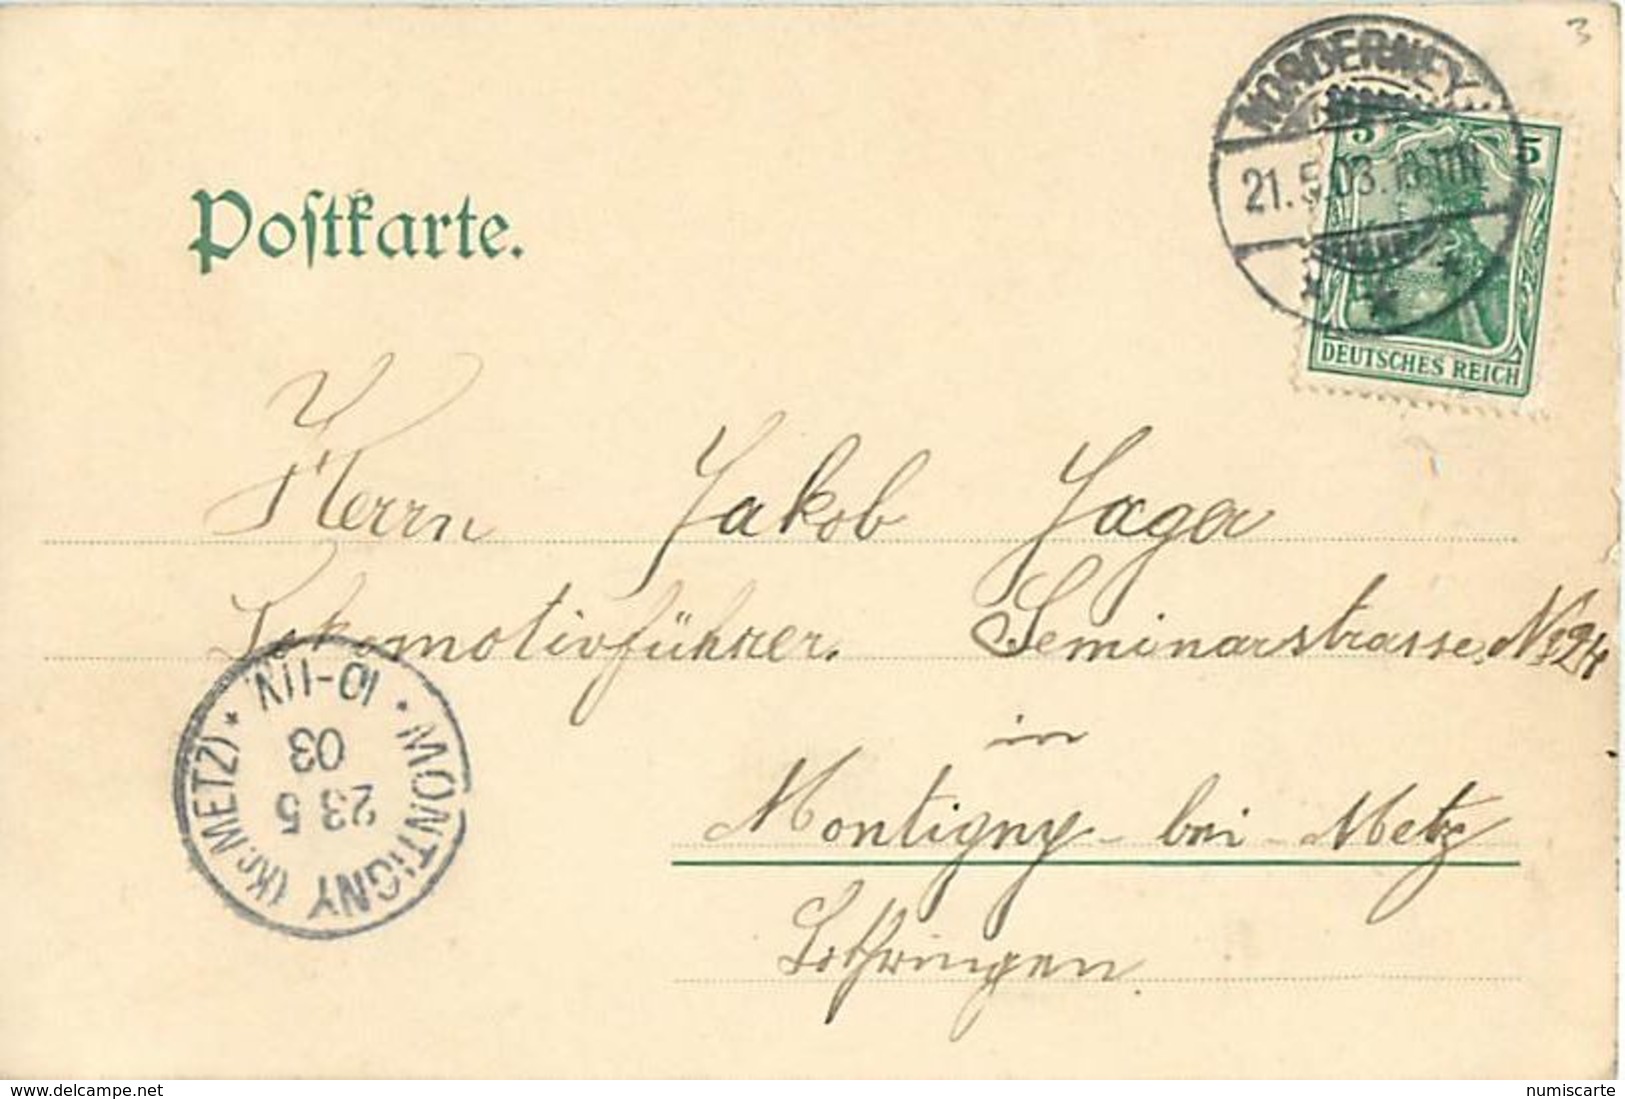 3
NORDERNEY
21.5.03.
5 5
DEUTSCHES REICH
Postkarte.
Herrn Jakob Jager
Lokomotivführer. Seminarstrasse No 24
in
Montigny bei Metz
Lothringen.
* MONTIGNY (Kr. METZ) *
23 5
03
10-11V.
delcampe.net
numiscarte